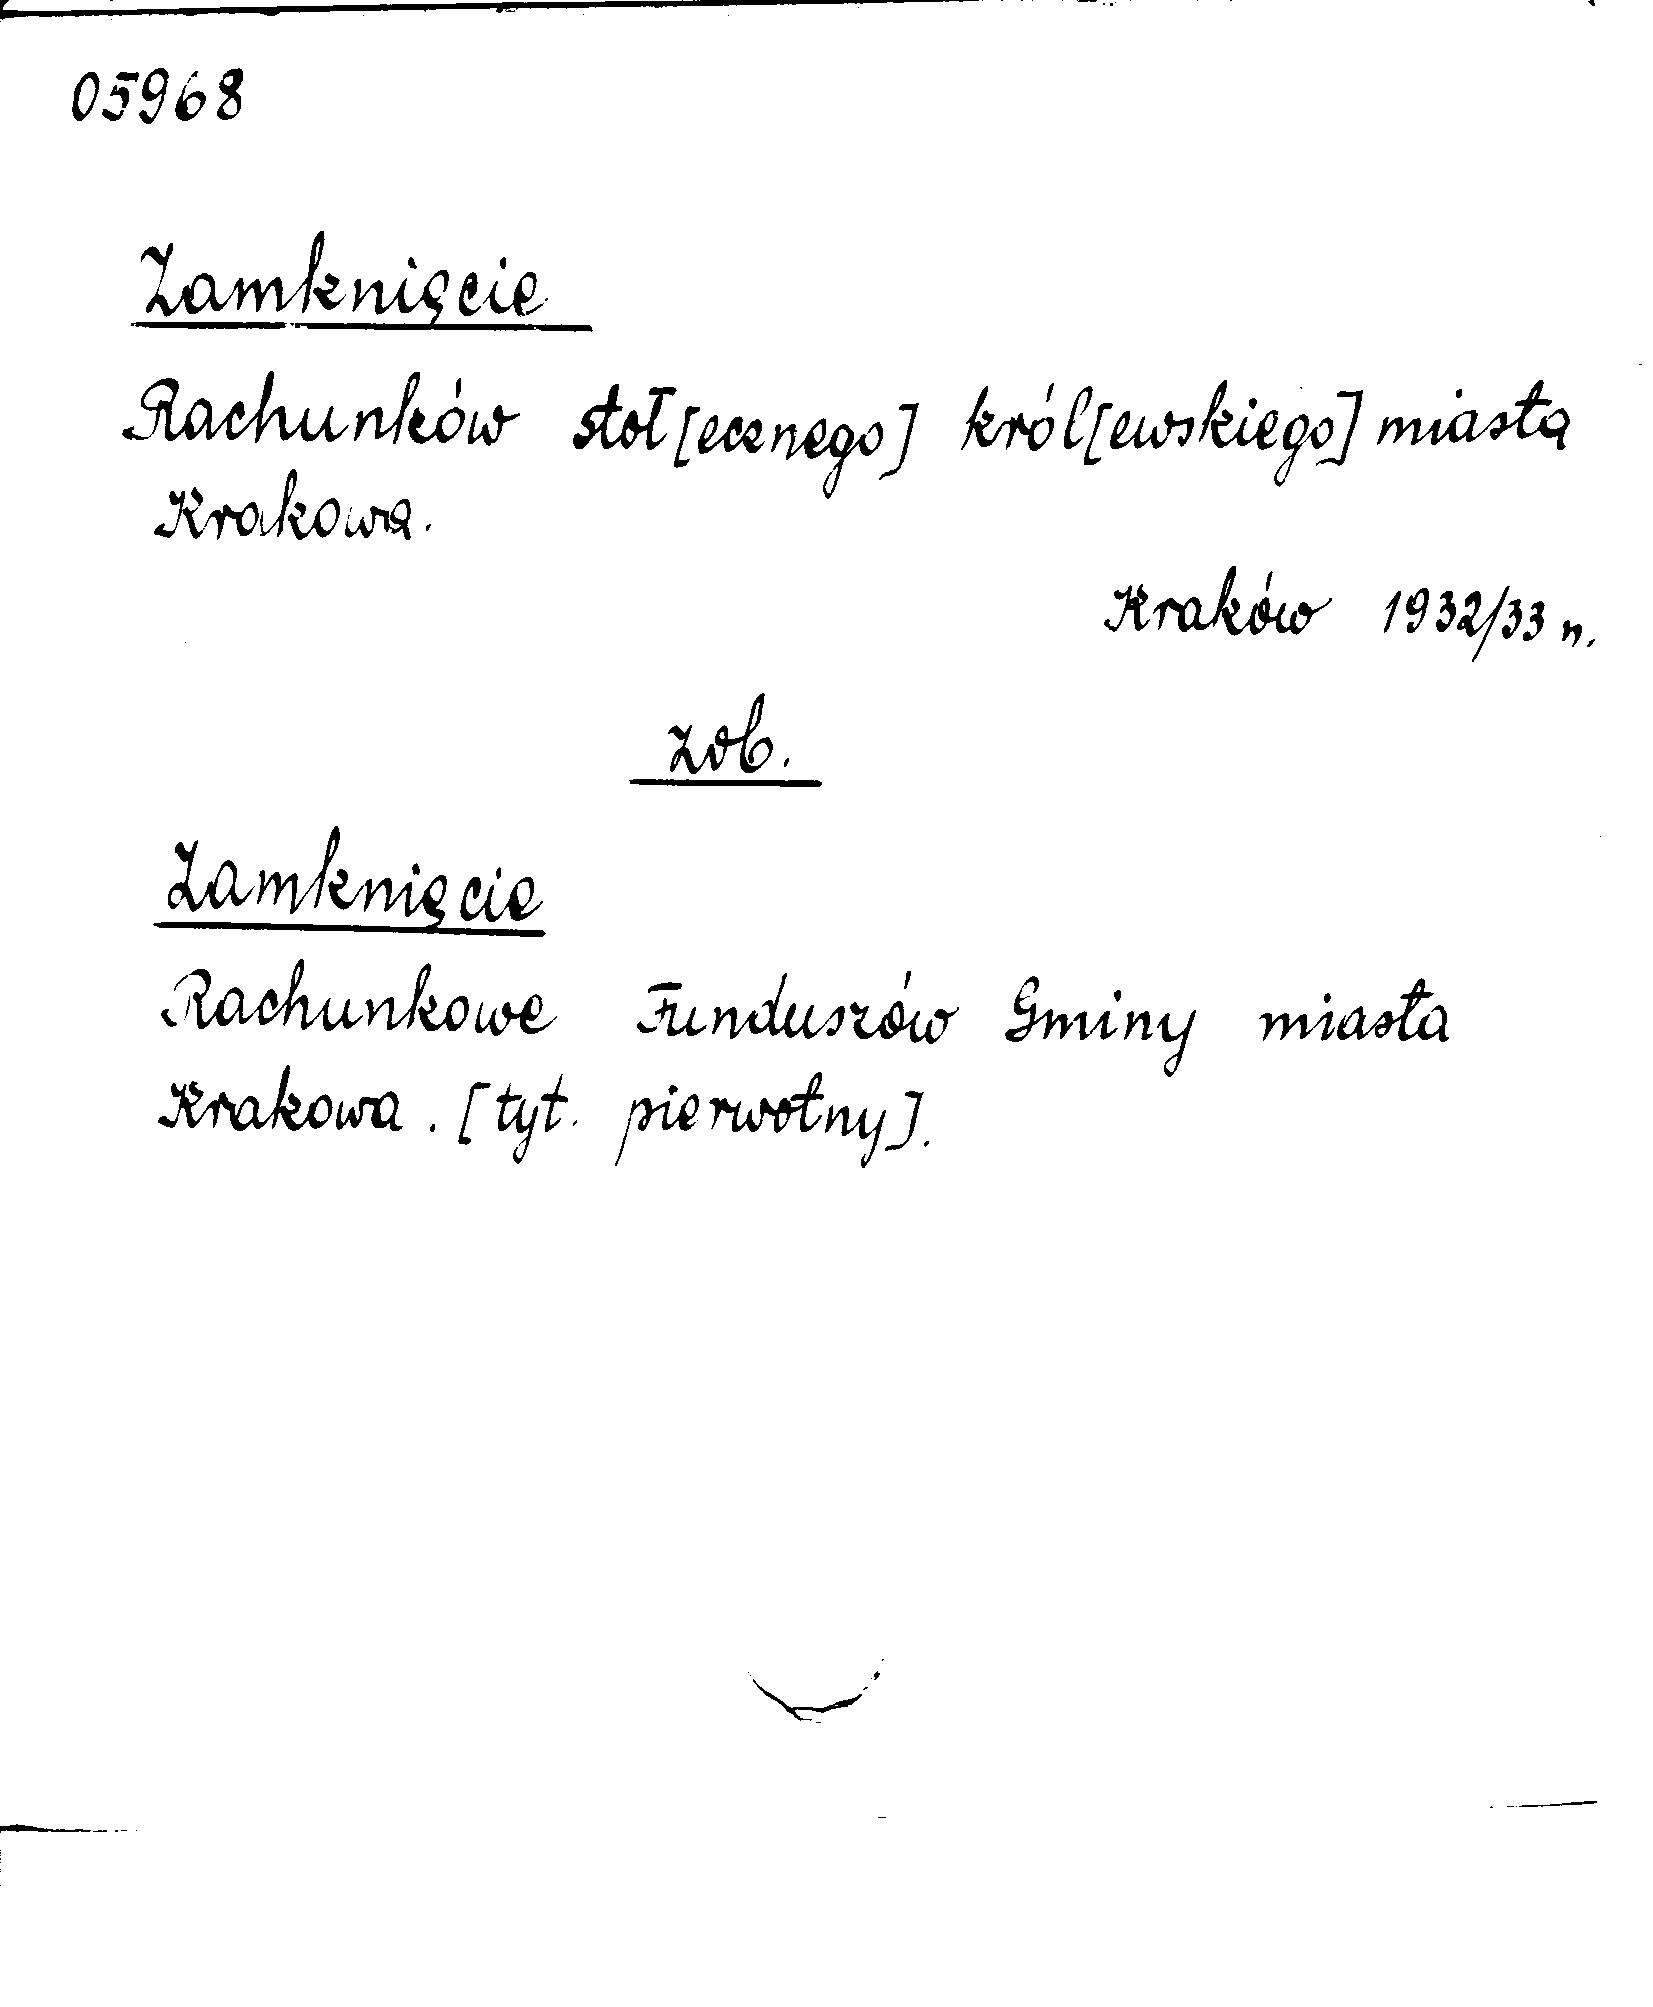 05968
Zamknięcie
Rachunków stoł[ecznego] król[ewskiego] miasta
Krakowa.
Kraków 1932/33 n.
zob.
Zamknięcie
Rachunkowe Funduszów Gminy miasta
Krakowa. [tyt. pierwotny].